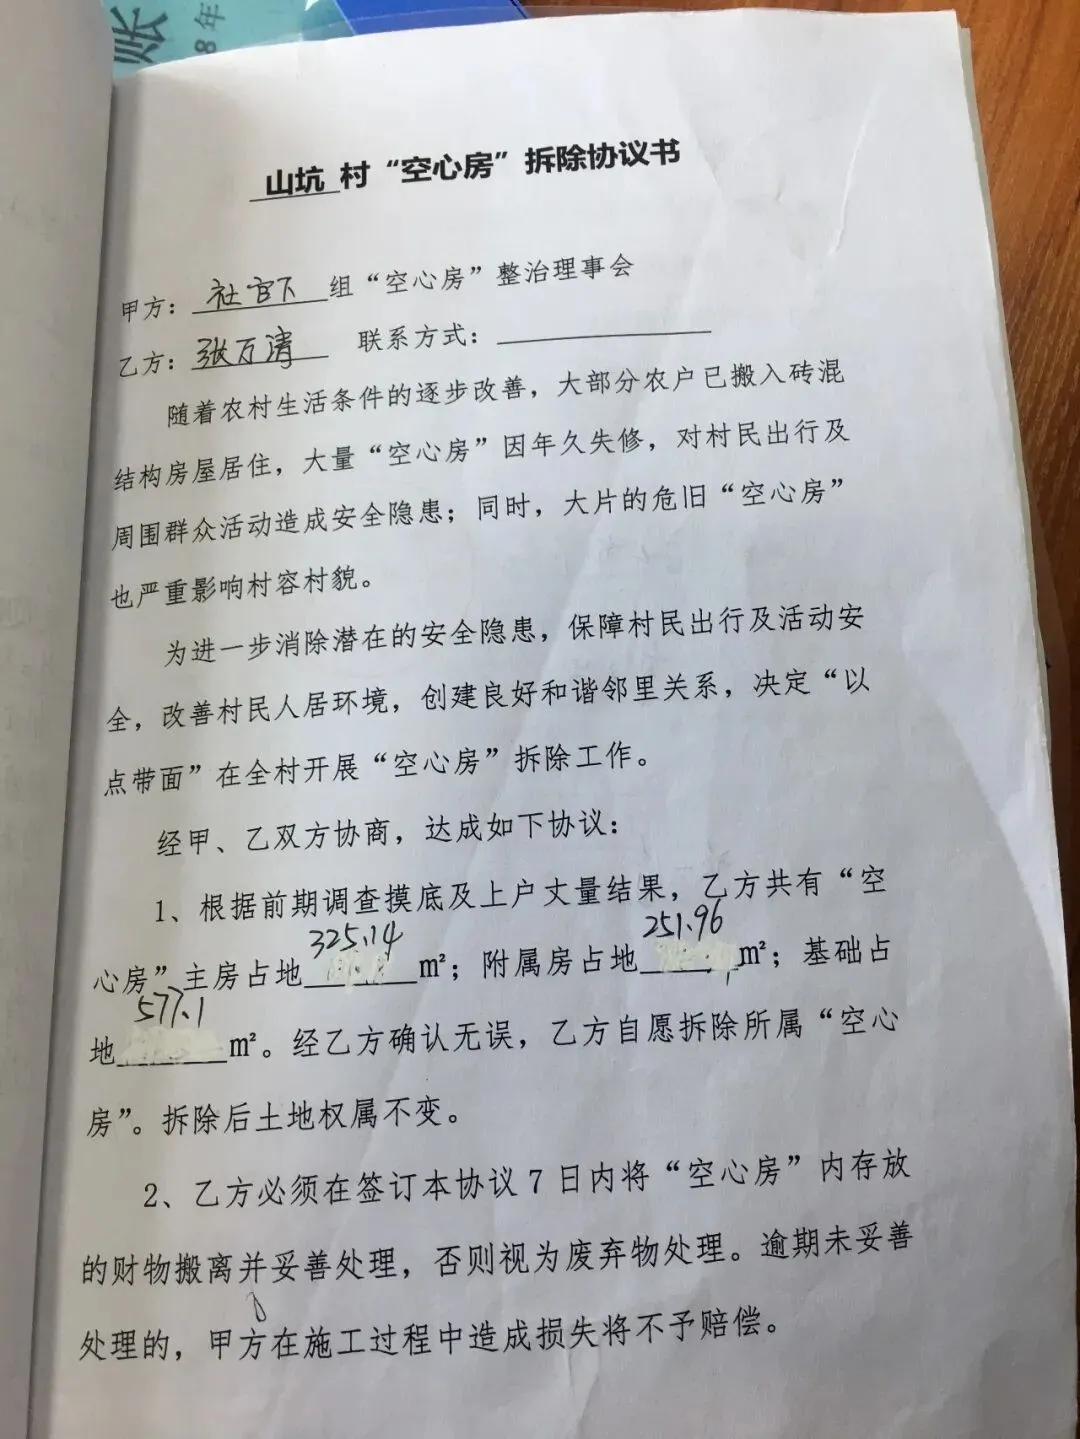 账
8年
山坑 村“空心房”拆除协议书
甲方：社官下组“空心房”整治理事会
乙方：张万清 联系方式：
随着农村生活条件的逐步改善，大部分农户已搬入砖混
结构房屋居住，大量“空心房”因年久失修，对村民出行及
周围群众活动造成安全隐患；同时，大片的危旧“空心房”
也严重影响村容村貌。
为进一步消除潜在的安全隐患，保障村民出行及活动安
全，改善村民人居环境，创建良好和谐邻里关系，决定“以
点带面”在全村开展“空心房”拆除工作。
经甲、乙双方协商，达成如下协议：
1、根据前期调查摸底及上户丈量结果，乙方共有“空
心房”主房占地325.14m²；附属房占地251.96m²；基础占
地577.1m²。经乙方确认无误，乙方自愿拆除所属“空心
房”。拆除后土地权属不变。
2、乙方必须在签订本协议7日内将“空心房”内存放
的财物搬离并妥善处理，否则视为废弃物处理。逾期未妥善
处理的，甲方在施工过程中造成损失将不予赔偿。